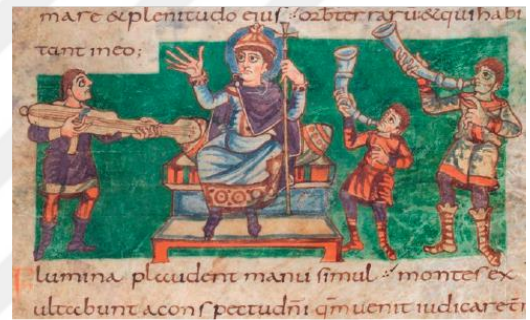 mare & plenitudo eius orbterrarū & quihabi
tant ineo;
Flumina plaudent manu simul montes ex
ultabunt aconspectudn̄i qm̄uenit iudicaret̄r